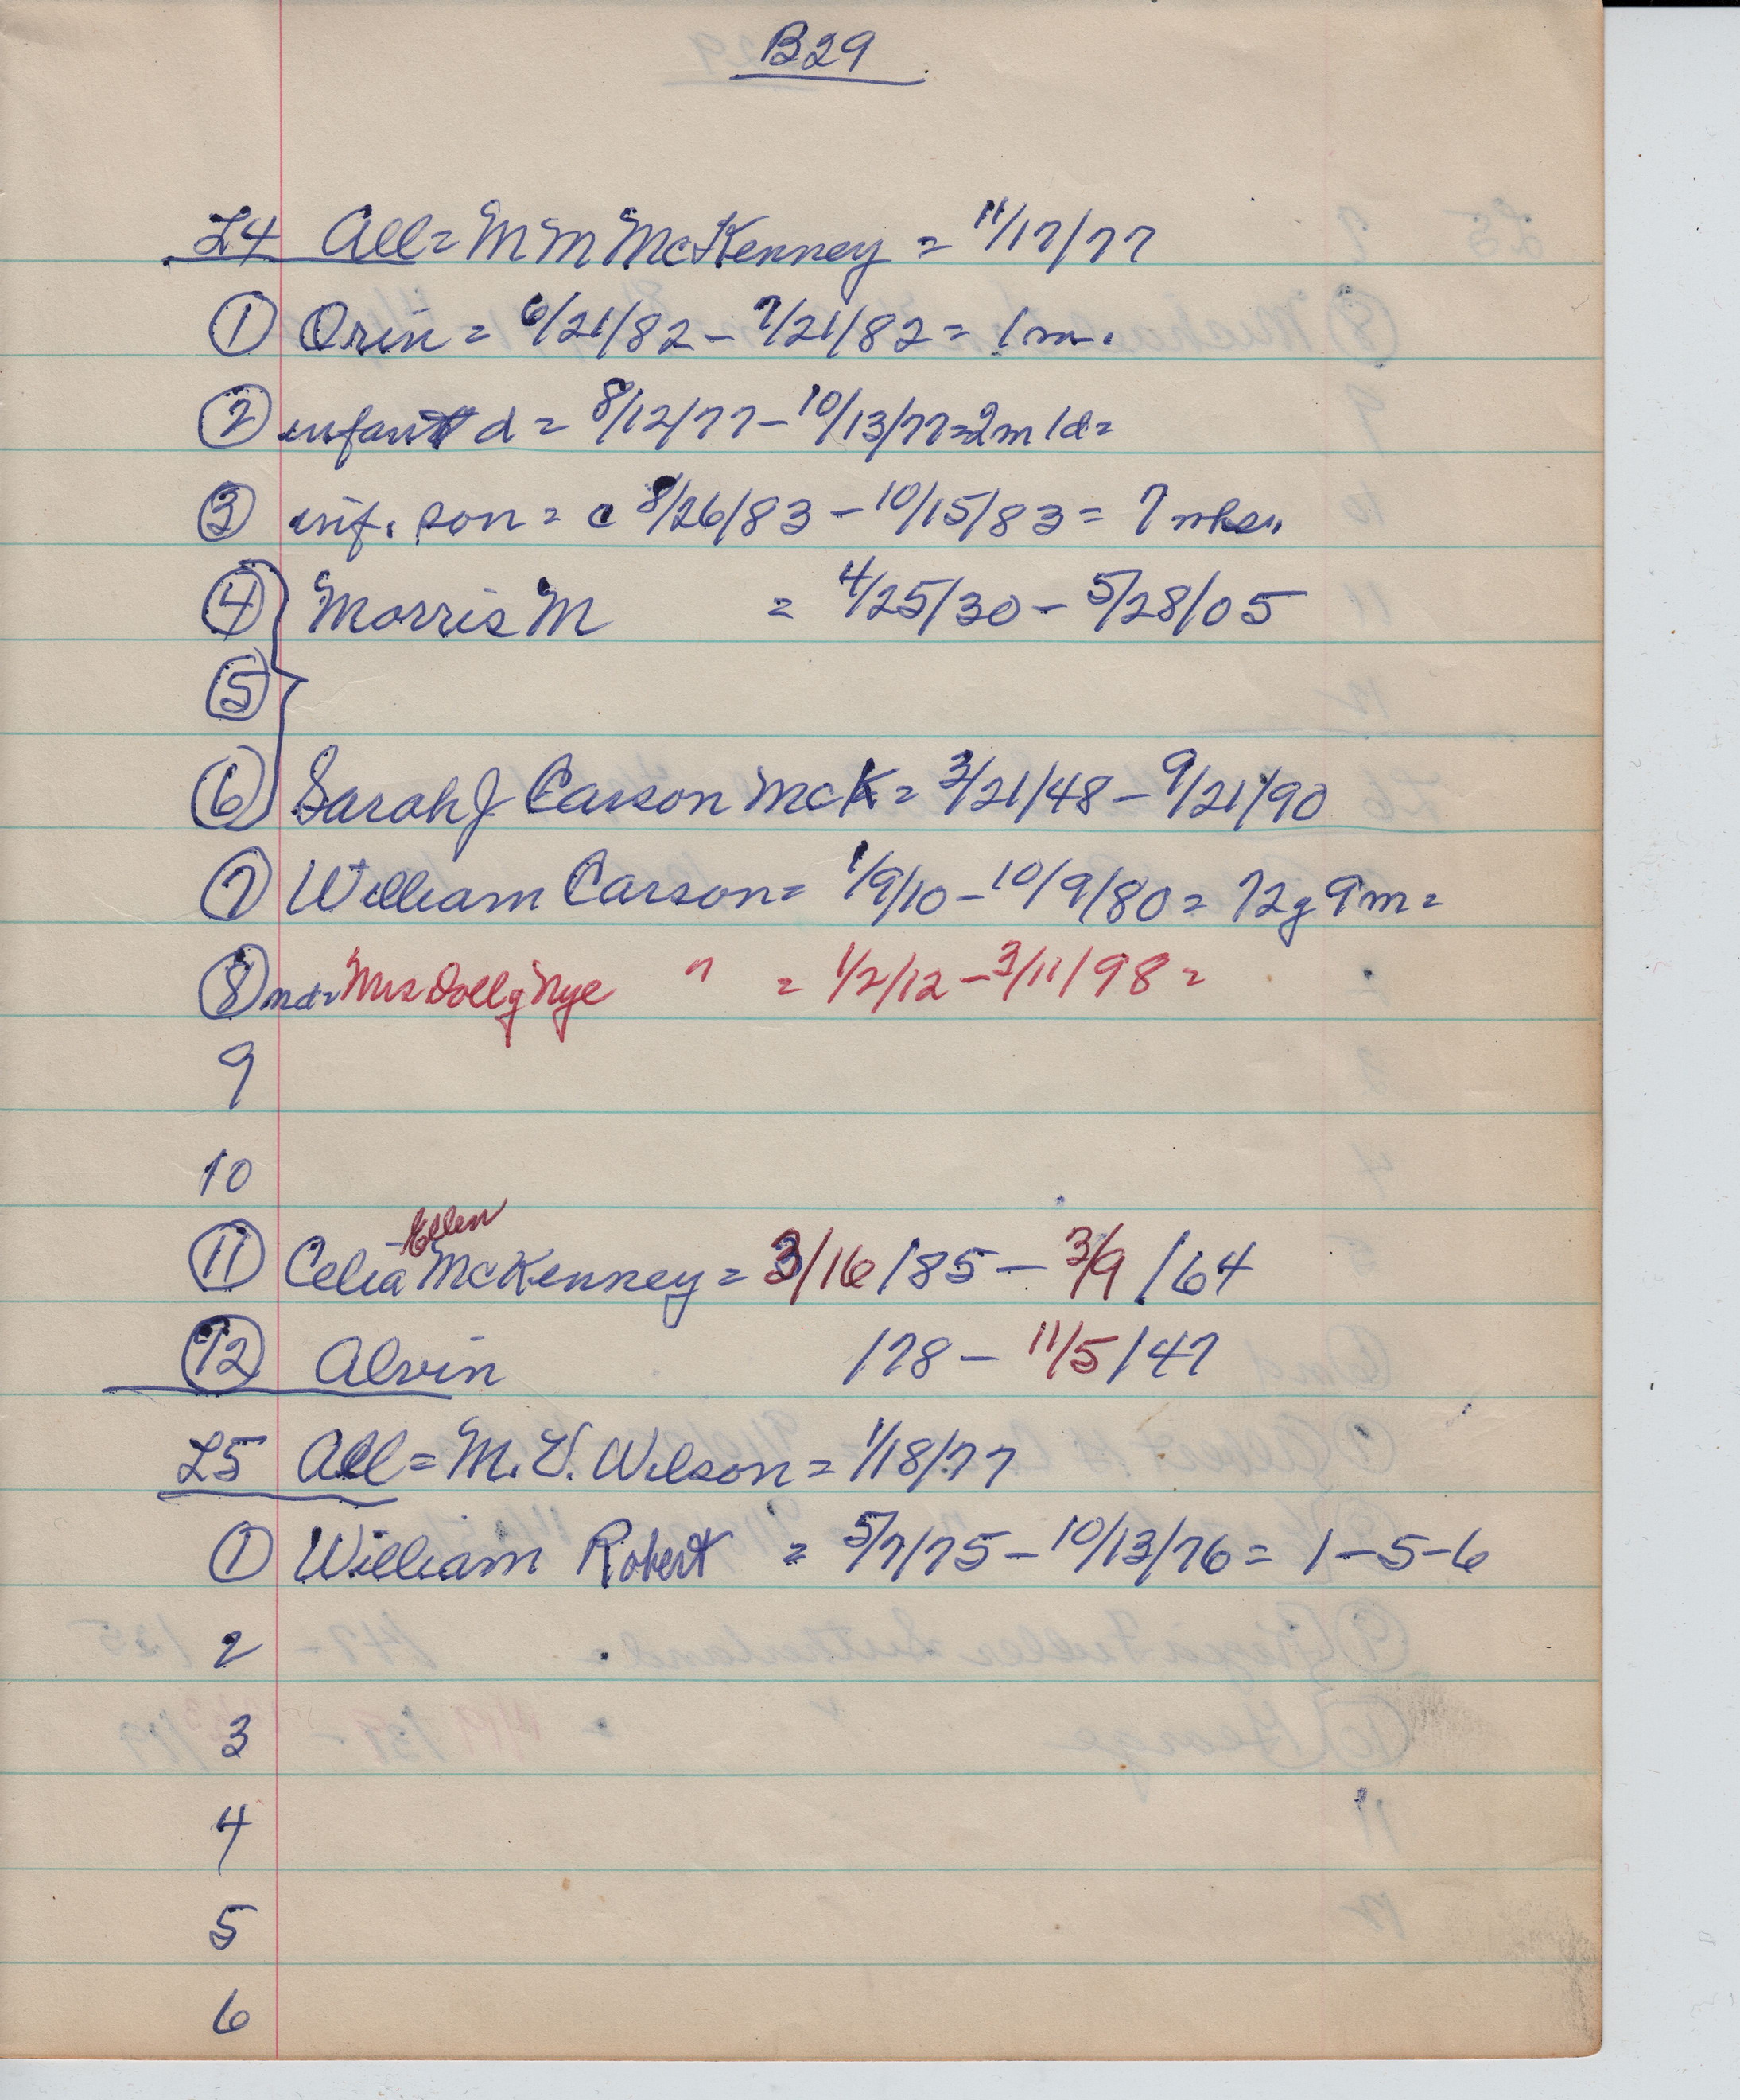 B29
L4 All = M M McKenney = 11/17/77
① Orin = 6/21/82 - 7/21/82 = 1 m.
② infant d = 8/12/77 - 10/13/77 = 2m 1d =
③ inf. son = c 8/26/83 - 10/15/83 = 7 wks..
④ Morris M = 4/25/30 - 5/28/05
⑤
⑥ Sarah J Carson McK = 3/21/48 - 9/21/90
⑦ William Carson = 1/9/10 - 10/9/80 = 72y 9m =
⑧ md = Mrs Dolly Nye " = 1/2/12 - 3/11/98 =
9
10
Ellen
⑪ Celia McKenney = 3/16/85 - 3/9/64
⑫ Alvin /78 - 11/5/47
L5 All = M. V. Wilson = 1/18/77
① William Robert = 5/7/75 - 10/13/76 = 1-5-6
2
3
4
5
6